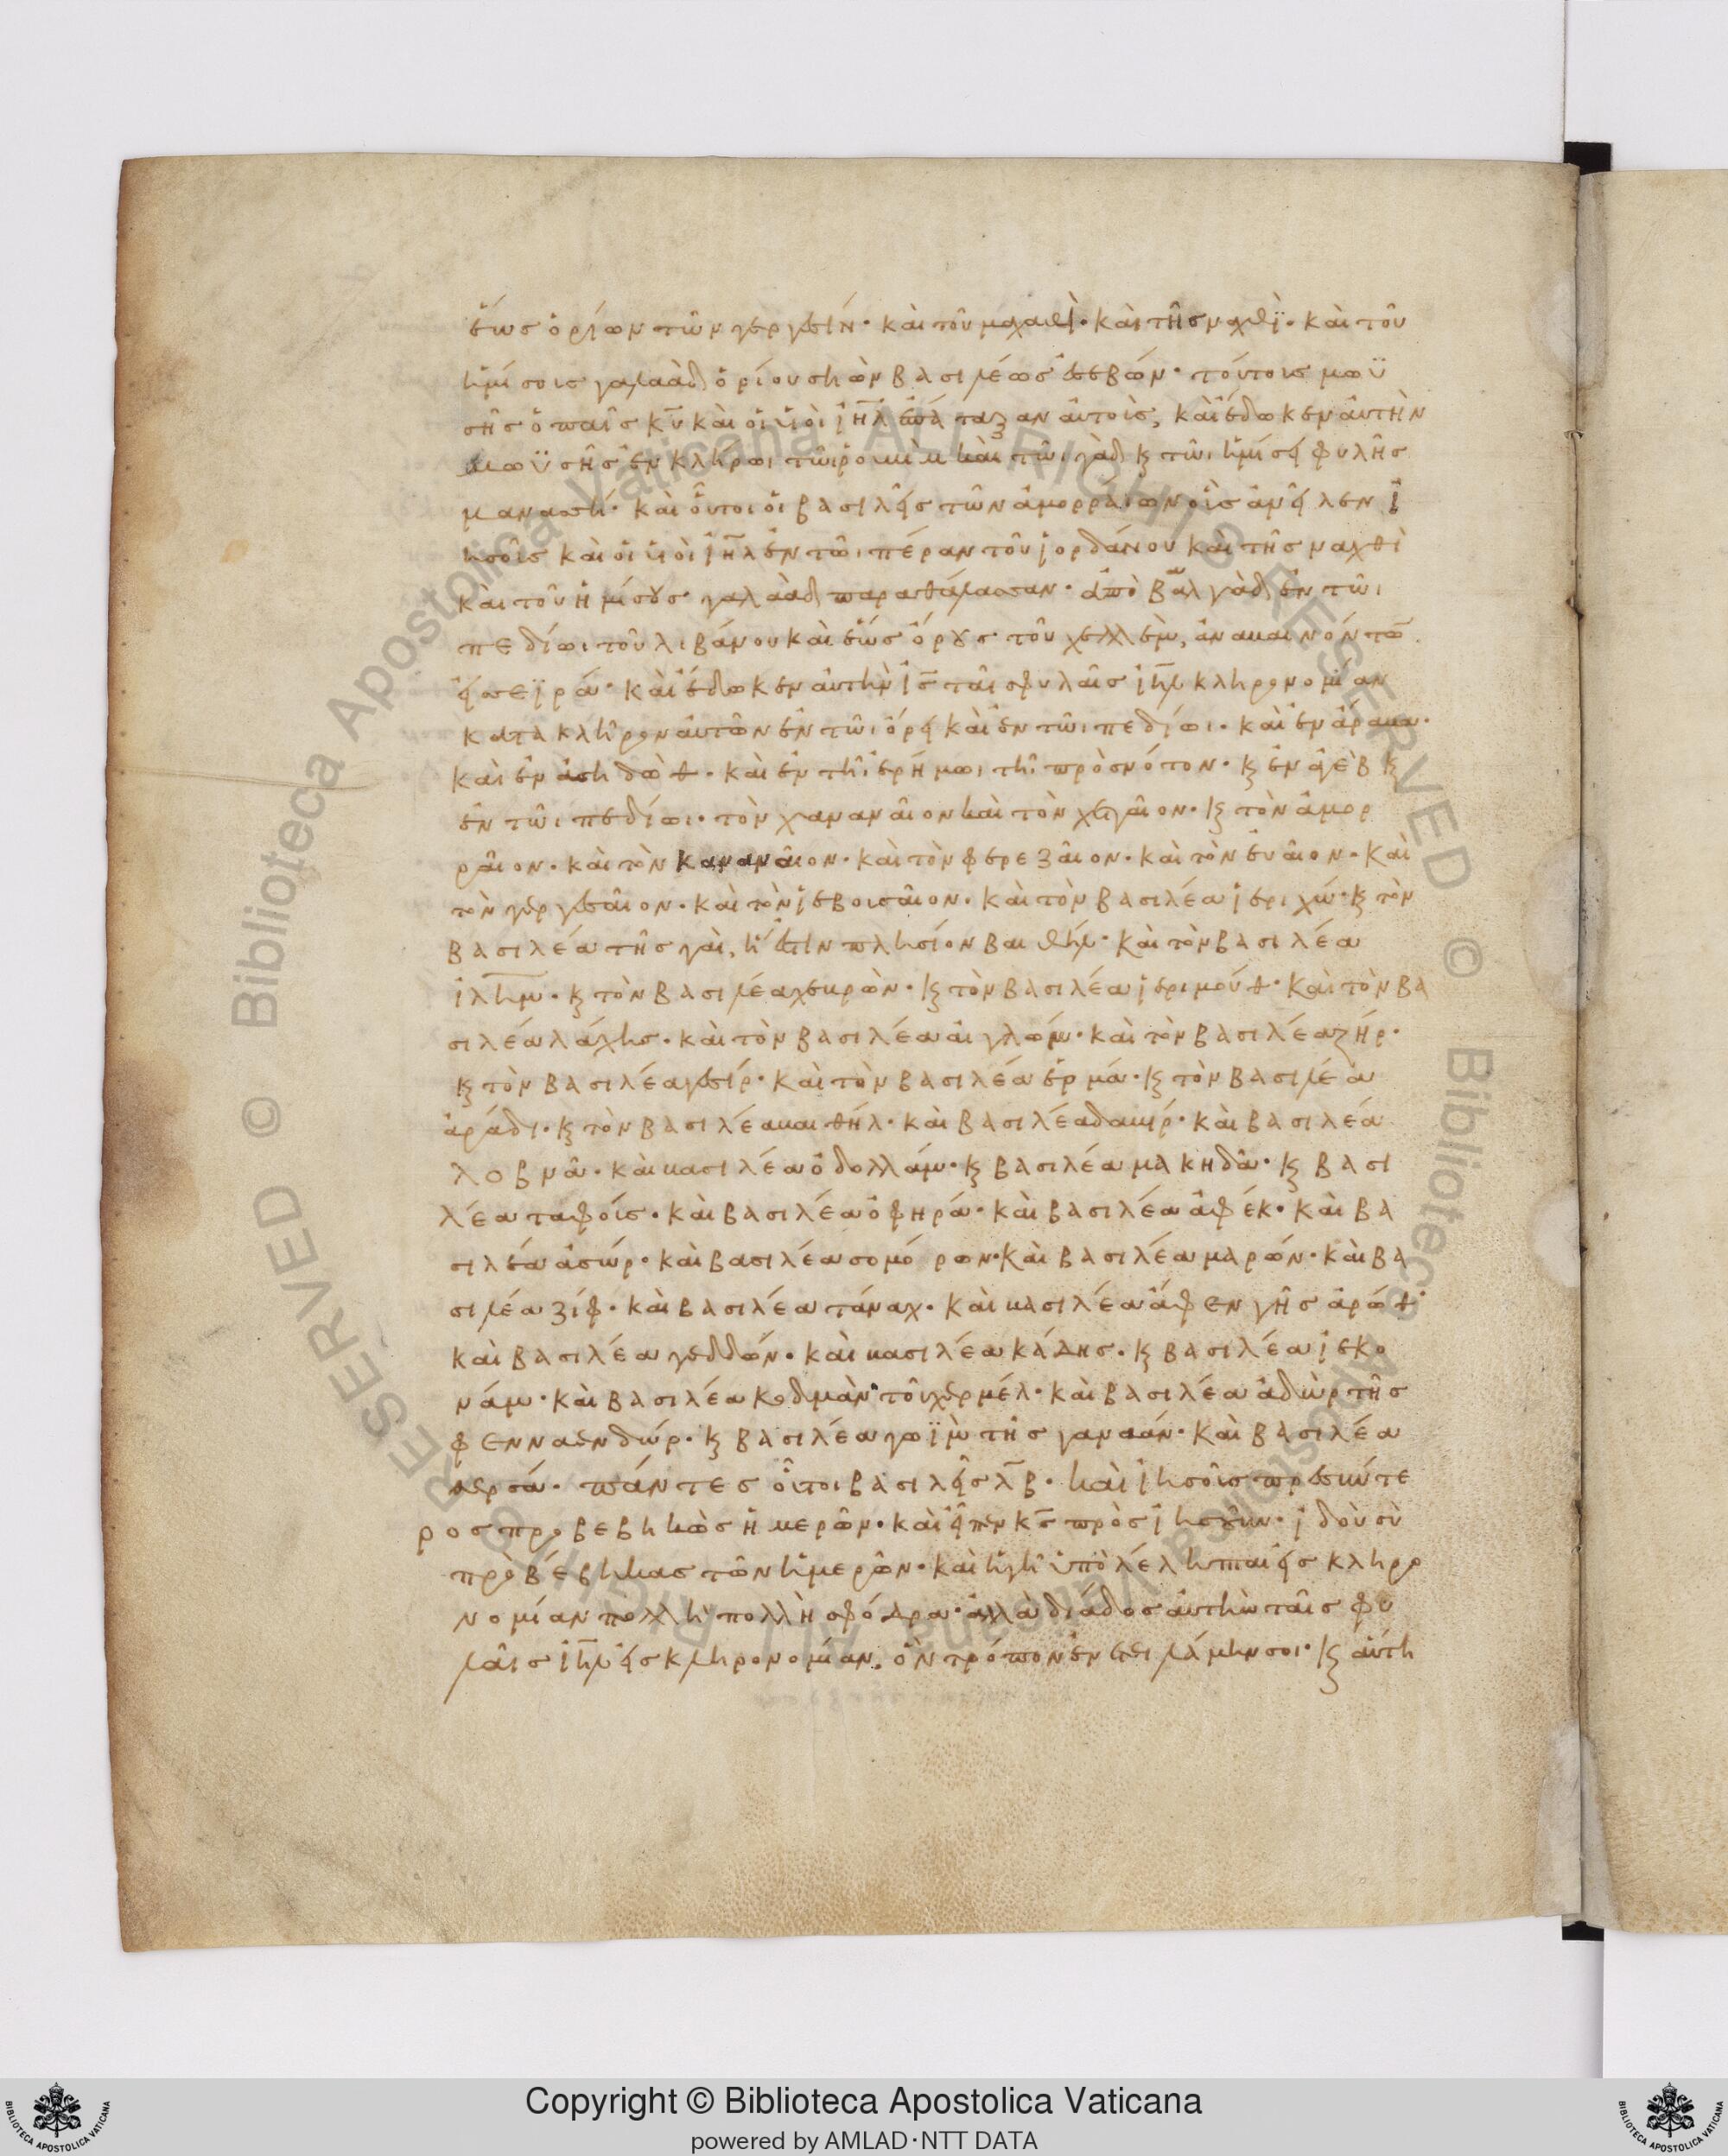 ἕως ὁρίων τῶν γεργεσὶν· καὶ τοῦ μαχαθὶ· καὶ τῆς ναχθῒ· καὶ τοῦ
ἡμίσοις γαλαὰδ ὁρίου σηὼν βασιλέως ἐσεβών· τούτοις μωϋ
σῆς ὁ παῖς κ̅υ̅ καὶ οἱ υἱοὶ ι̅η̅λ̅ ἐπάταξαν αὐτοὶς, καὶ ἔδωκεν αὐτὴν
μωϋσῆς ἐν κλήρωι τῶι ῥουβὶμ καὶ τῶι γὰδ κ τῶι ἡμίσει φυλῆς
μανασσή· καὶ οὗτοι οἱ βασιλεῖς τῶν ἀμορραίων οἷς ἀνεῖλεν ἰ
ησοῖς καὶ οἱ υἱοὶ ι̅η̅λ̅ ἐν τῶι πέραν τοῦ ἰορδάνου καὶ τῆς ναχθὶ
καὶ τοῦ ἡμίσους γαλαὰδ παραθάλασσαν· ἀπὸ βααλ γὰδ ἐν τῶι
πεδίωι τοῦ λιβάνου καὶ ἕως ὄρους τοῦ χελλεὶμ, ἀναβαινόντω̅
εἰς σεϊρά· καὶ ἔδωκεν αὐτὴν ι̅ς̅ ταῖς φυλαῖς ι̅η̅λ̅ κληρονομίαν
κατα κλῆρον αὐτῶν ἐν τῶι ὄρει καὶ ἐν τῶι πεδίωι. καὶ ἐν ἄραβα·
καὶ ἐν ἀσηδὼθ. καὶ ἐν τῆι ἐρήμωι τῆ πρὸς νότον· κ ἐν ἀγὲβ κ
ἐν τῶι πεδίωι. τὸν χαναναῖον καὶ τὸν χετταῖον· κ τὸν ἀμορ
ραῖον· καὶ τὸν καναναῖον· καὶ τὸν φερεζαῖον· καὶ τὸν εὐαῖον· καὶ
τὸν γεργεσαῖον· καὶ τὸν ἰεβοισαῖον· καὶ τὸν βασιλέα ἱεριχώ· κ τὸν
βασιλέα τῆς γαὶ, ἥ ἐστιν πλησίον βαιθήλ· καὶ τὸν βασιλέα
ι̅λ̅η̅μ̅· κ τὸν βασιλέα χεβρὼν· κ τὸν βασιλέα ἰεριμούθ· καὶ τὸν βα
σιλέα λάχης· καὶ τὸν βασιλέα αἰγλώμ· καὶ τὸν βασιλέα γήρ·
κ τὸν βασιλέα γεσίρ· καὶ τὸν βασιλέα ἑρμά· κ τὸν βασιλέα
ἀράδι· κ τὸν βασιλέα βαιθήλ· καὶ βασιλέα δαβίρ· καὶ βασιλέα
λοβνᾶ· καὶ βασιλέα ὁδολλάμ· κ βασιλέα μακηδᾶ· κ βασι
λέα ταφοίς· καὶ βασιλέα ὀφηρά· καὶ βασιλέα ἀφέκ· καὶ βα
σιλέα ἀσώρ· καὶ βασιλέα σομόρων· καὶ βασιλέα μαρών· καὶ βα
σιλέα ζίφ· καὶ βασιλέα τάναχ· καὶ βασιλέα ἄφεν γῆς ἀρώθ·
καὶ βασιλέα γεδδών· καὶ βασιλέα κάδης· κ βασιλέα ἰεκο
νάμ· καὶ βασιλέα κοδμὰν τοῦ χερμέλ· καὶ βασιλέα ἀδὼρ τῆς
φενναενδώρ· κ βασιλέα γωῒμ τῆς γαναάν· καὶ βασιλέα
θερσά· πάντες οὗτοι βασιλεῖς λ̅β̅· καὶ ἰησοῖς πρεσβύτε
ρος προβεβηκὼς ἡμερῶν· καὶ εἶπεν κ̅ς̅ πρὸς ἰησοῦν· ἰδοὺ σὺ
προβέβηκας τῶν ἡμερῶν· καὶ ἡ γῆ ὑπολέληπται εἰς κληρο
νομίαν πολλὴ πολλὴ σφόδρα· ἀλλὰ διάδος αὐτὴν ταῖς φυ
λαῖς ι̅η̅λ̅ εἰς κληρονομίαν, ὃν τρόπον ἐντειλάμην σοι· κ αὕτη
Copyright © Biblioteca Apostolica Vaticana
powered by AMLAD·NTT DATA